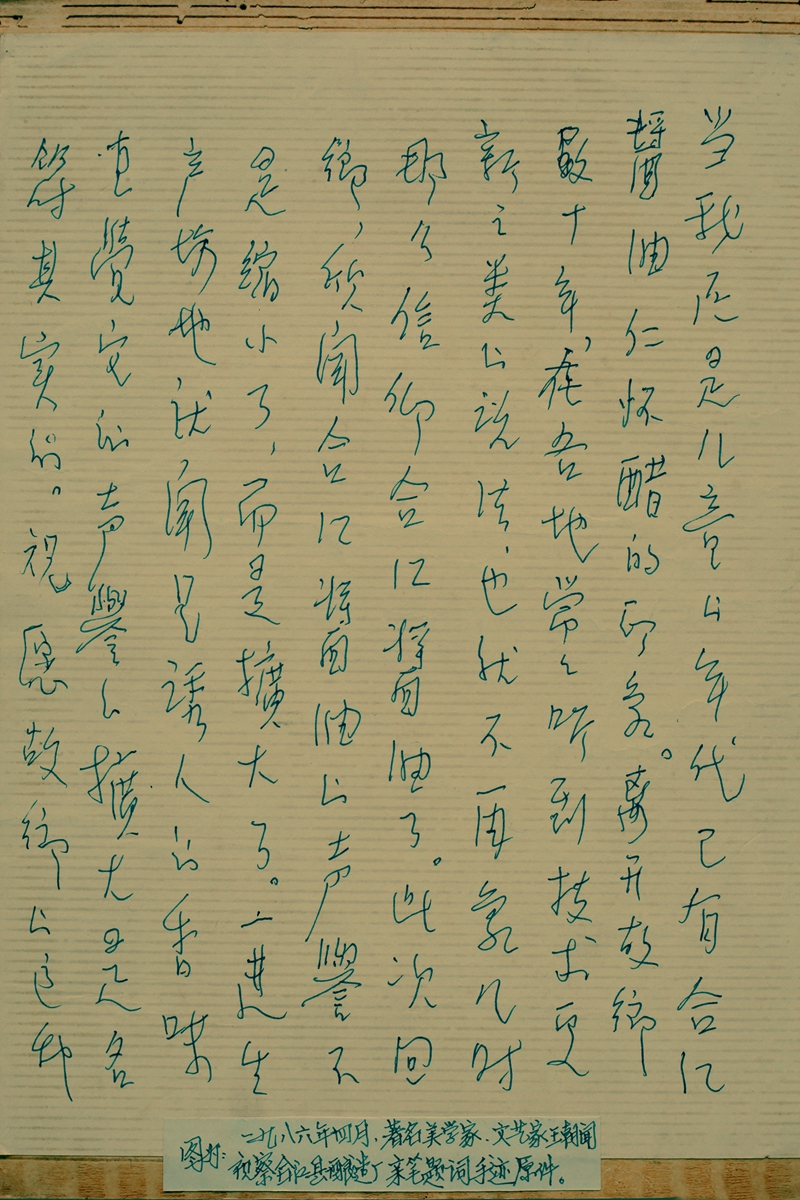 当我还是儿童的年代已有合江
醬油仁怀醋的印象。离开故鄉
數十年，在各地常々听到技术更
新之类的说法，也就不再象儿时
那么信仰合江醬油了。此次回
鄉，欣闻合江醬油的声譽不
是缩小了，而是擴大了。一進生
产场地，就闻見诱人的香味
更覺它的声譽的擴大是名
符其实的。祝愿故鄉的这种
一九八六年四月，著名美学家、文艺家王朝闻
视察合江县酿造厂亲笔题词手迹原件。